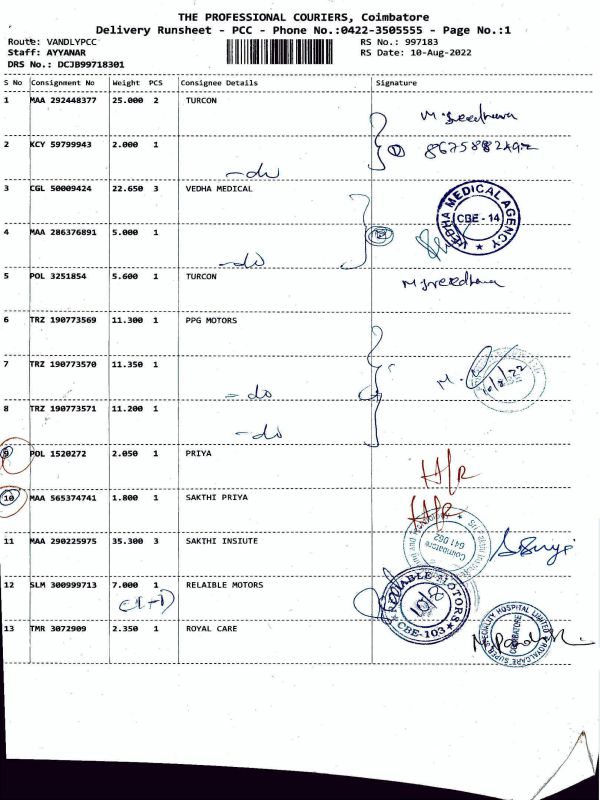 THE PROFESSIONAL COURIERS, Coimbatore
Delivery Runsheet - PCC - Phone No.:0422-3505555 - Page No.:1
Route: VANDLYPCC RS No.: 997183
Staff: AYYANAR RS Date: 10-Aug-2022
DRS No.: DCJB99718301
S No Consignment No Weight PCS Consignee Details Signature
1 MAA 292448377 25.000 2 TURCON
2 KCY 59799943 2.000 1
-do
3 CGL 50009424 22.650 3 VEDHA MEDICAL
VEDHA MEDICAL AGENCY
CBE - 14
4 MAA 286376891 5.000 1
-do
5 POL 3251854 5.600 1 TURCON
6 TRZ 190773569 11.300 1 PPG MOTORS
7 TRZ 190773570 11.350 1
10/8/22
-do
8 TRZ 190773571 11.200 1
-do
9 POL 1520272 2.050 1 PRIYA
H/R
10 MAA 565374741 1.800 1 SAKTHI PRIYA
H/R
11 MAA 290225975 35.300 3 SAKTHI INSIUTE
Coimbatore
641 062
12 SLM 300999713 7.000 1 RELAIBLE MOTORS
RELIABLE MOTORS
10/8
CBE-103
13 TMR 3072909 2.350 1 ROYAL CARE
ROYALCARE SUPER SPECIALITY HOSPITAL LIMITED
COIMBATORE